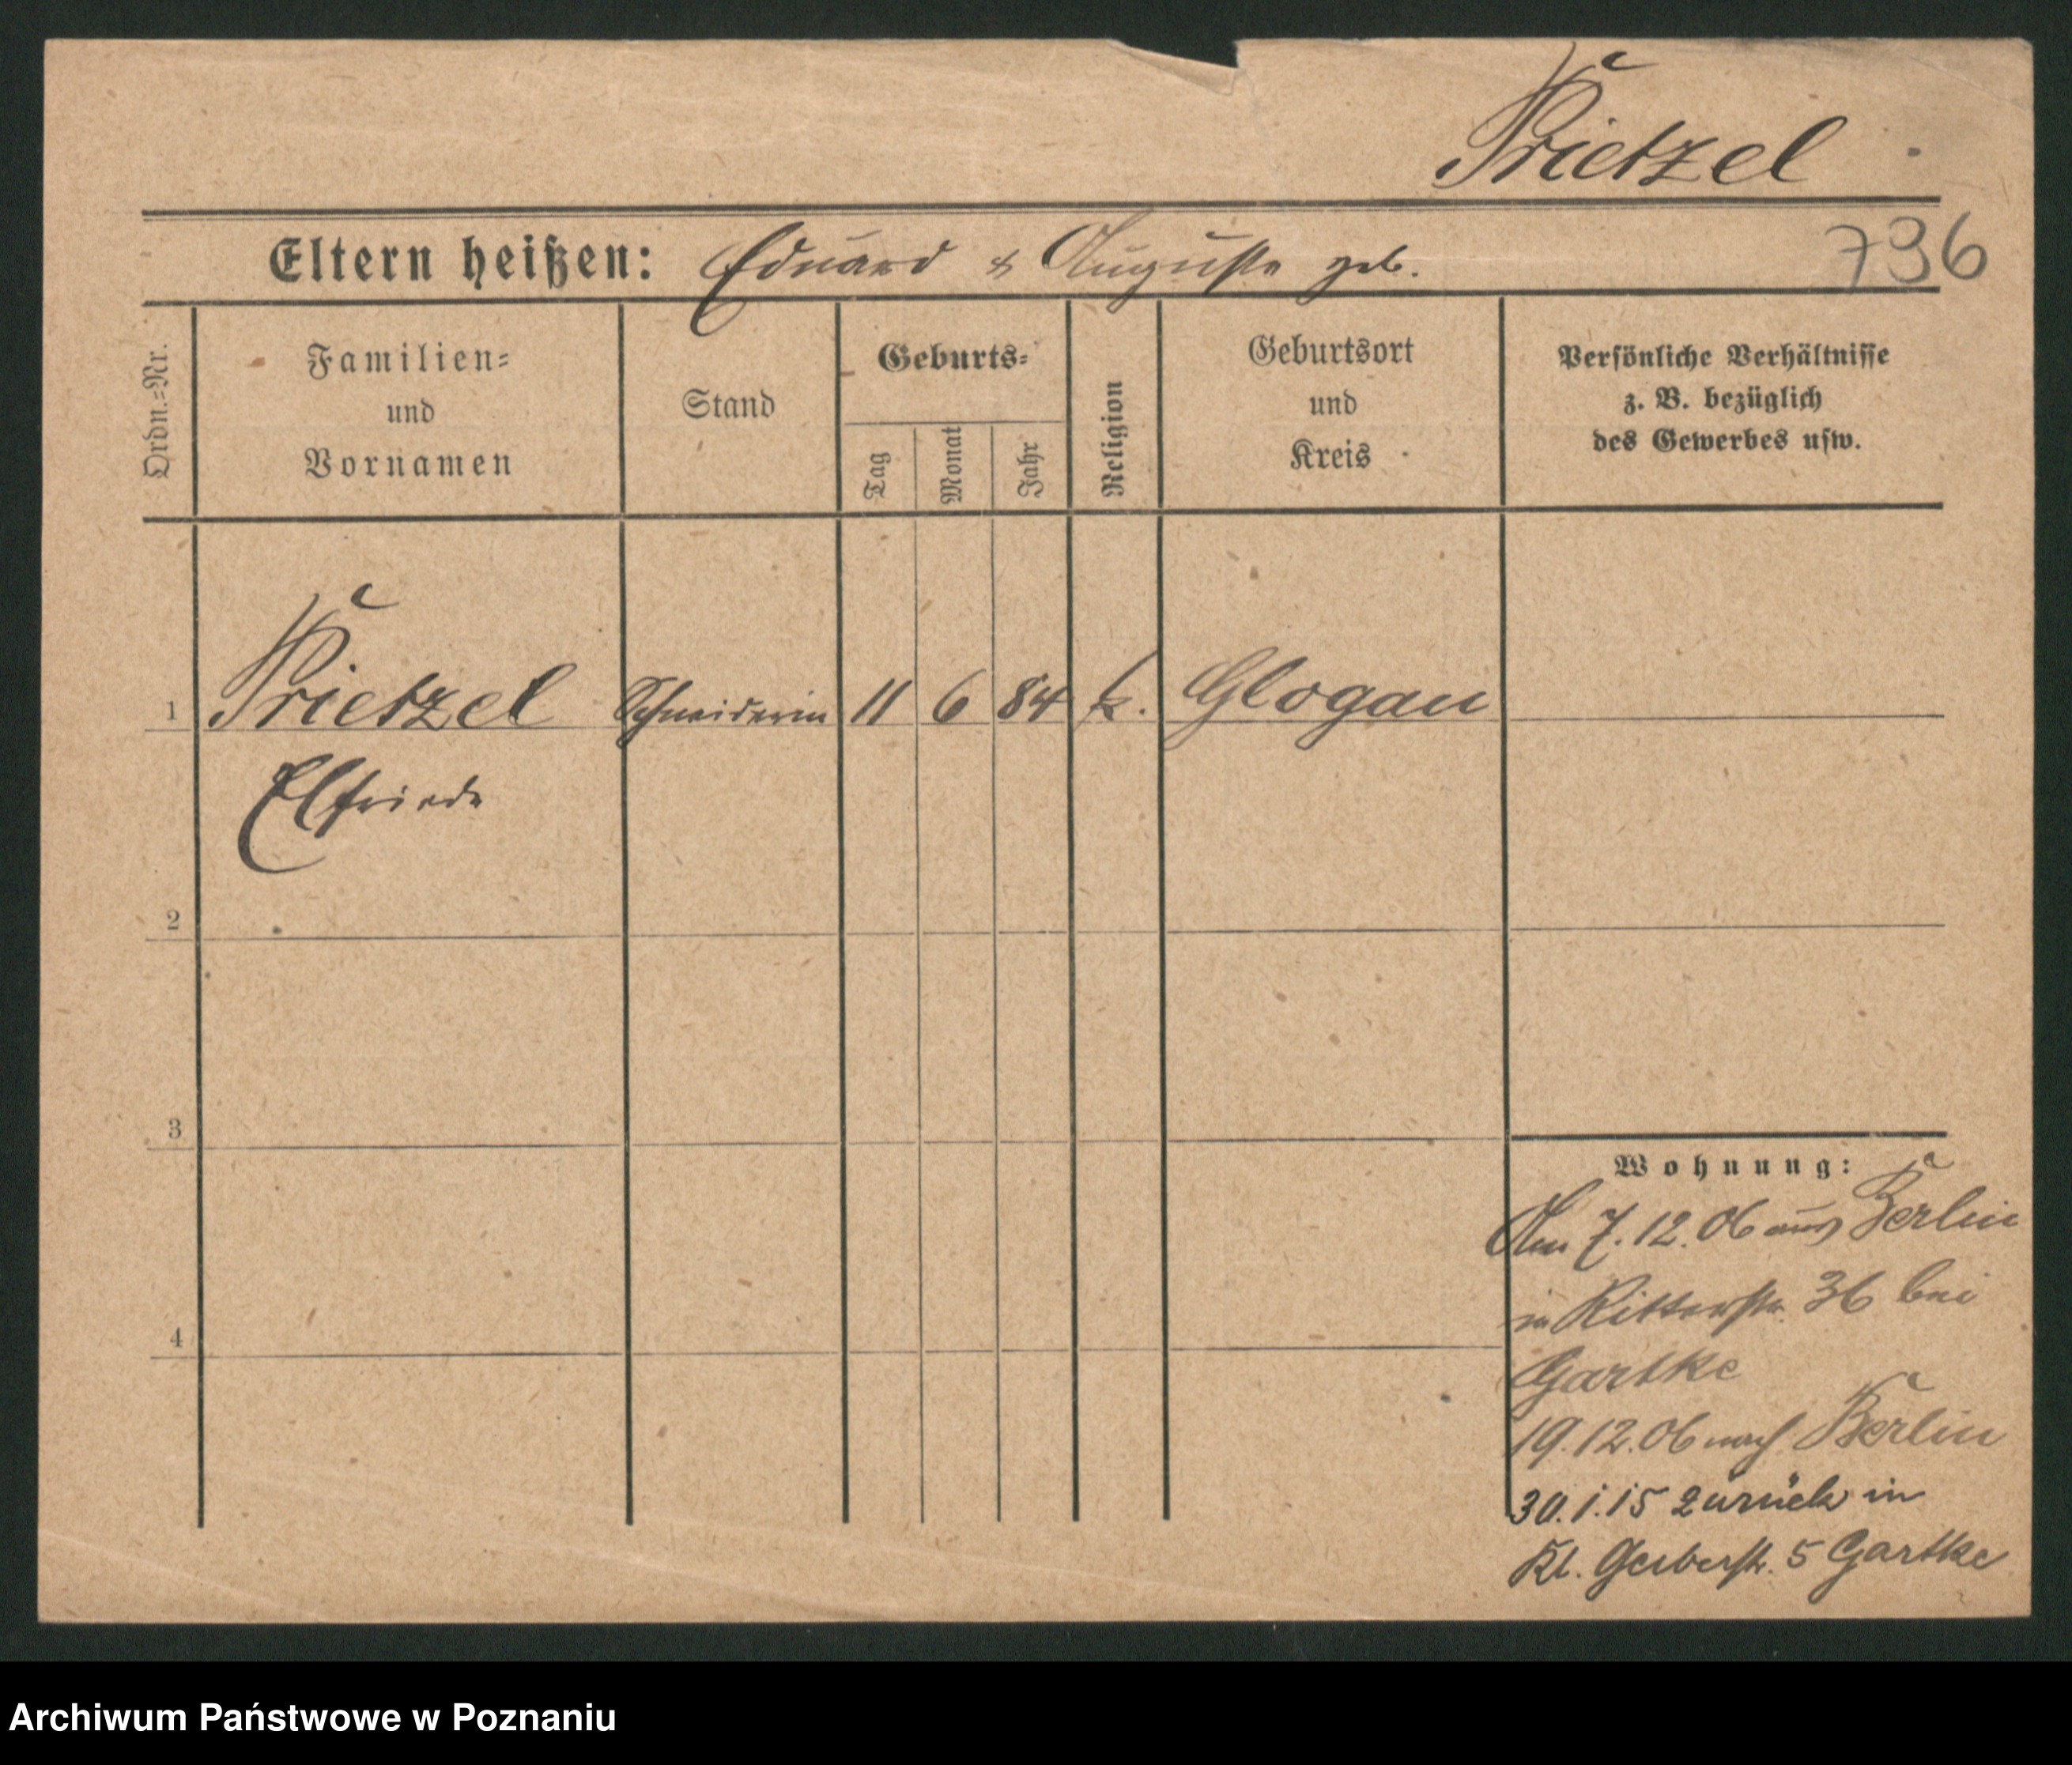 Prietzel
Eltern heißen: Eduard & Auguste geb.
736
Ordn.=Nr.
Familien=
und
Vornamen
Stand
Geburts=
Tag
Monat
Jahr
Religion
Geburtsort
und
Kreis
Persönliche Verhältnisse
z. B. bezüglich
des Gewerbes usw.
1 Prietzel Schneiderin 11 6 84 k. Glogau
Elfriede
2
3
4
Wohnung:
Am 7.12.06 aus Berlin
in Ritterstr. 36 bei
Gartke
19.12.06 nach Berlin
30.1.15 zurück in
Kl. Gerberstr. 5 Gartke
Archiwum Państwowe w Poznaniu